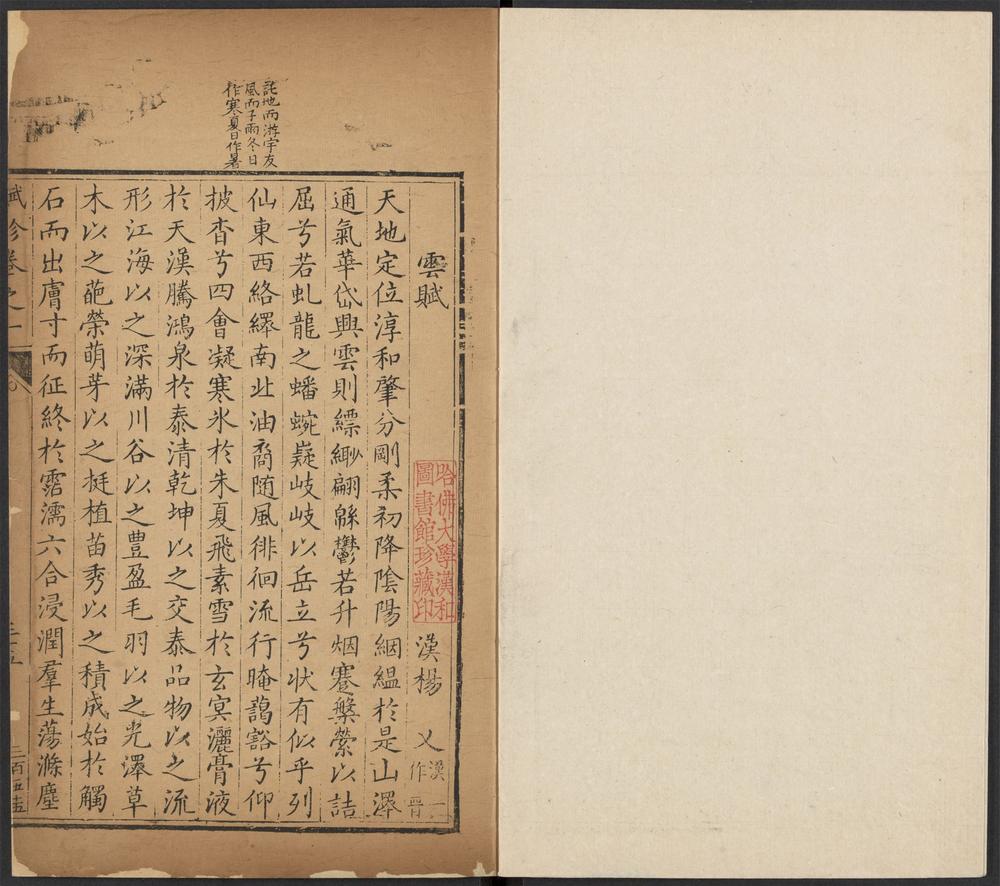 託地而游宇友
風而子雨冬日
作寒夏日作暑
雲賦 漢楊乂 漢一作晉
哈佛大學漢和
圖書館珍藏印
天地定位淳和肇分剛柔初降陰陽絪縕於是山澤
通氣華岱興雲則縹緲翩緜鬱若升烟蹇槃縈以詰
屈兮若虬龍之蟠蜿嶷岐岐以岳立兮狀有似乎列
仙東西絡繹南北油裔随風徘徊流行晻藹豁兮仰
披杳兮四會凝寒氷於朱夏飛素雪於玄冥灑膏液
於天漢騰鴻泉於泰清乾坤以之交泰品物以之流
形江海以之深滿川谷以之豊盈毛羽以之光澤草
木以之葩榮萌芽以之挺植苗秀以之積成始於觸
石而出膚寸而征終於霑濡六合浸潤羣生蕩滌塵
賦珍卷之一